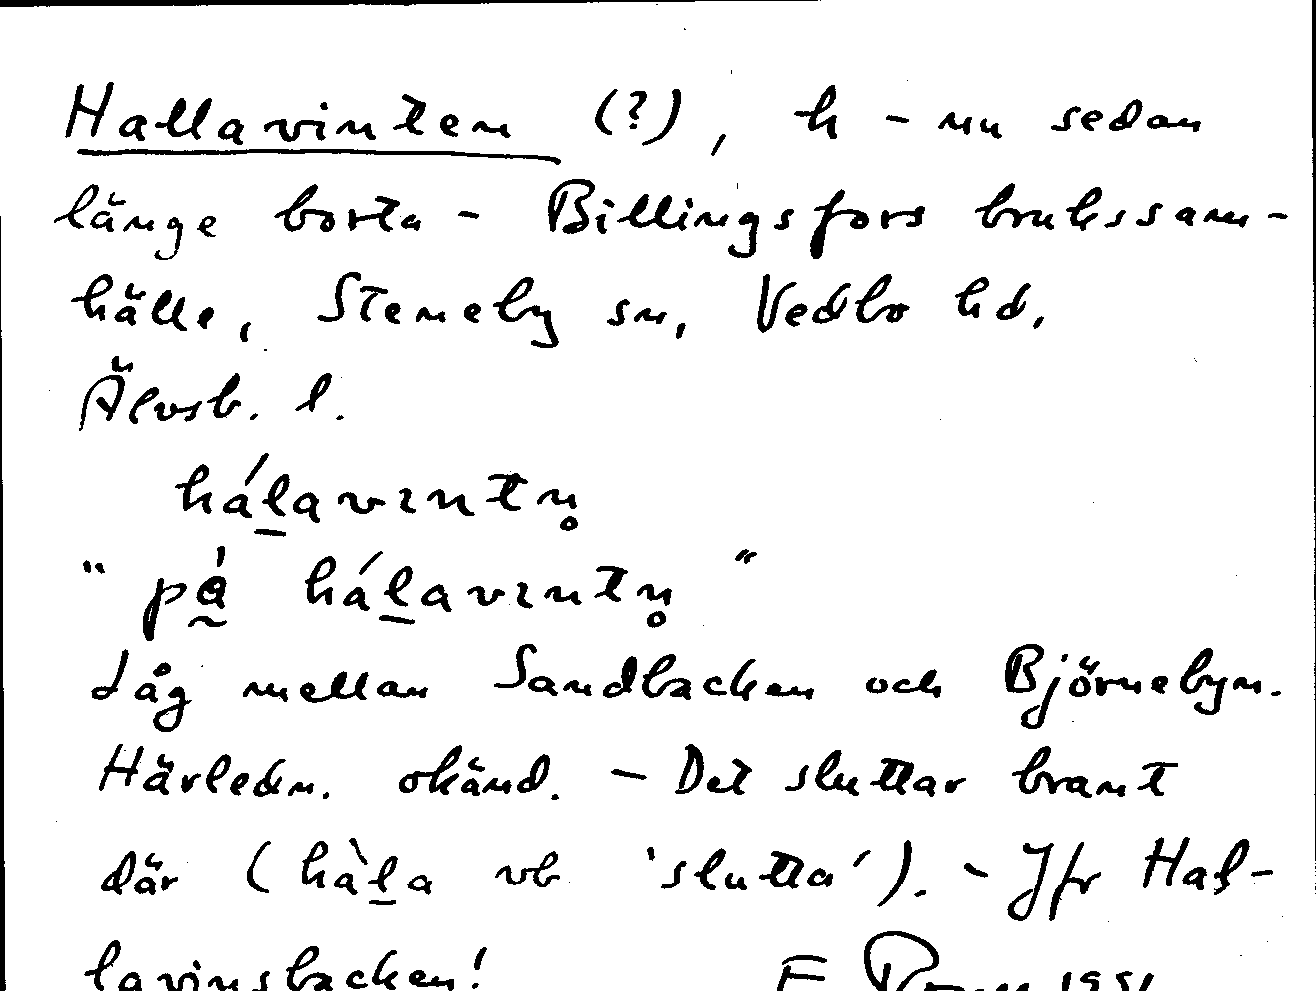 Hallavinten (?), h - nu sedan
länge borta - Billingsfors brukssam-
hälle, Steneby sn, Vedbo hd,
Älvsb. l.
hál̲avıntn̥
" på̰ hál̲avıntn̥ "
Låg mellan Sandbacken och Björnebyn.
Härledn. okänd. - Det sluttar brant
där (hàl̲a vb 'slutta'). - Jfr Hal-
lavinsbacken! F 1951